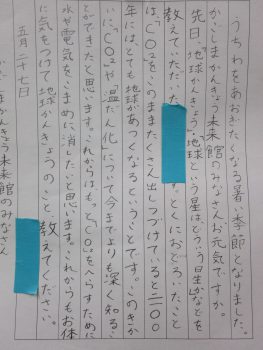 うちわをあおぎたくなる暑い季節となりました。
かこしまかんきょう未来館のみなさんお元気ですか。
先日、「地球かんきょう」、「地球という星はどういう星か」などを
教えていただいた がとくにおどろいたこと
は、「CO2」をこのままたくさん出しつづけていると二一〇〇
年にはとても地球があつくなるということです。そのときか
いに「CO2」や「温だん化」について今までよりも深く知るこ
とができたと思います。これからはもっと「CO2」をへらすために
水や電気をこまめに消したいと思います。これからもお体
に気をつけて地球かんきょうのこと 教えてください。
五月二十七日
かんきょう未来館のみなさん